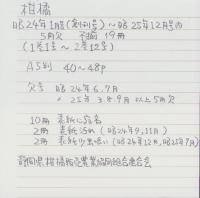 柑橘
昭24年1月号(創刊号)~昭25年12月号内
5月欠 予備19冊
(1巻1号~2巻12号)
A5判 40~48p
欠号 昭24年6.7月
〃 25年3.8.9月 以上5冊欠
10冊 表紙
2冊 表紙汚れ (昭24年9,11月)
2冊 表紙少虫喰い (昭24年12月,昭25年9月)
静岡県柑橘販売農業協同組合連合会